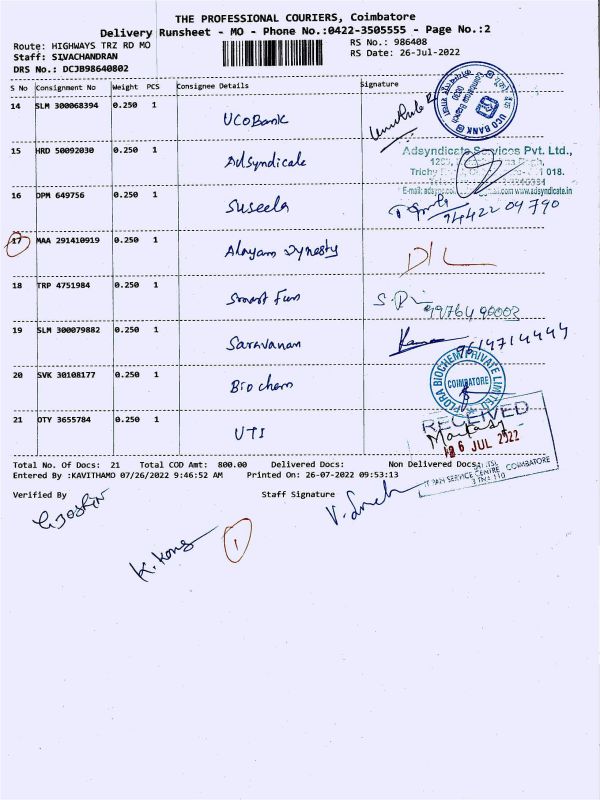 THE PROFESSIONAL COURIERS, Coimbatore
Delivery Runsheet - MO - Phone No.:0422-3505555 - Page No.:2
Route: HIGHWAYS TRZ RD MO
RS No.: 986408
Staff: SIVACHANDRAN
RS Date: 26-Jul-2022
DRS No.: DCJB98640802
S No Consignment No Weight PCS Consignee Details Signature
14 SLM 300068394 0.250 1 UCO Bank
UCO BANK
15 HRD 50092030 0.250 1 Adsyndicate
Adsyndicate Services Pvt. Ltd.,
Trichy
018.
www.adsyndicate.in
16 DPM 649756 0.250 1 Suseela
94422 04790
17 MAA 291410919 0.250 1 Alayam Dynesty D/L
18 TRP 4751984 0.250 1 Smart Fun
19 SLM 300079882 0.250 1 Saravanan
9614714444
20 SVK 30108177 0.250 1 Biochem
FLORA BIOCHEM PRIVATE LIMITED
COIMBATORE
21 OTY 3655784 0.250 1 UTI
RECEIVED
26 JUL 2022
PAN SERVICE CENTRE COIMBATORE
Total No. Of Docs: 21 Total COD Amt: 800.00 Delivered Docs: Non Delivered Docs:
Entered By :KAVITHAMO 07/26/2022 9:46:52 AM Printed On: 26-07-2022 09:53:13
Verified By Staff Signature
1